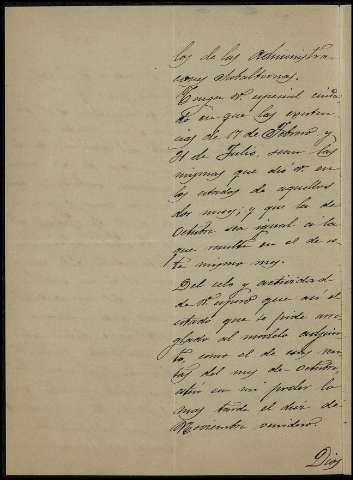 las de las Administra
ciones Subalternas.
Tenga V. especial cuida
do en que las existen
cias de 17 de Febrero y
31 de Julio, sean las
mismas que dió V. en
los estados de aquellos
dos meses; y que la de
Octubre sea igual a la
que resulte en el de es
te mismo mes.
Del celo y actividad
de V. espero que así el
estado que se pide arre
glado al modelo adjun
to, como el de esas ren
tas del mes de Octubre,
estén en mi poder lo
mas tarde el diez de
Noviembre venidero.
Dios